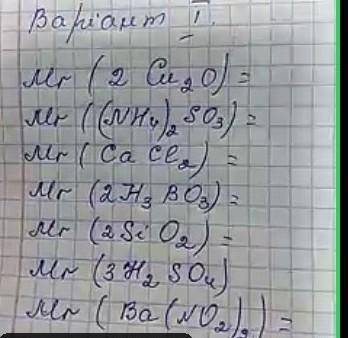 Варіант I.
Mr (2 Cu₂O) =
Mr ((NH₄)₂SO₃) =
Mr (CaCl₂) =
Mr (2H₃BO₃) =
Mr (2SiO₂) =
Mr (3H₂SO₄)
Mr (Ba(NO₂)₂) =